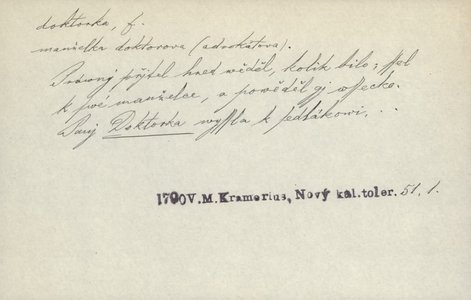 doktorka, f.
manželka doktorova (advokátova).
Prawný přjtel hned wěděl, kolik bilo; ssel
k své manželce, a powěděl gj wssecko.
Panj Doktorka wyssla k sedlákowi, ...
1790 V.M.Kramerius, Nový kal.toler. 51, 1.